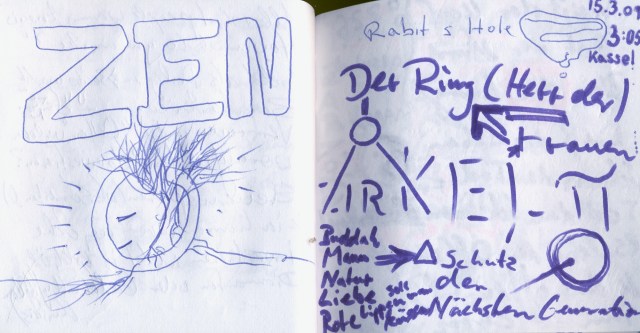 ZEN
Rabit s Hole
15.3.09
3:05
Kassel
Der Ring (Herr der)
Frauen
Buddah
Mann
Natur
Liebe
Rote Lippen soll man küssen
Δ Schutz
den
Nächsten Generation